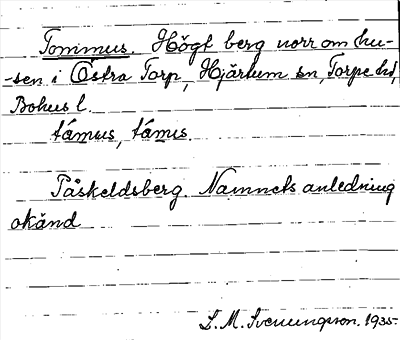 Tommus. Högt berg norr om hu-
-sen i Östra Torp, Hjärtum sn, Torpe hd,
Bohus l.
támus, támus.
Påskeldsberg. Namnets anledning
okänd
L. M. Svenungsson. 1935.